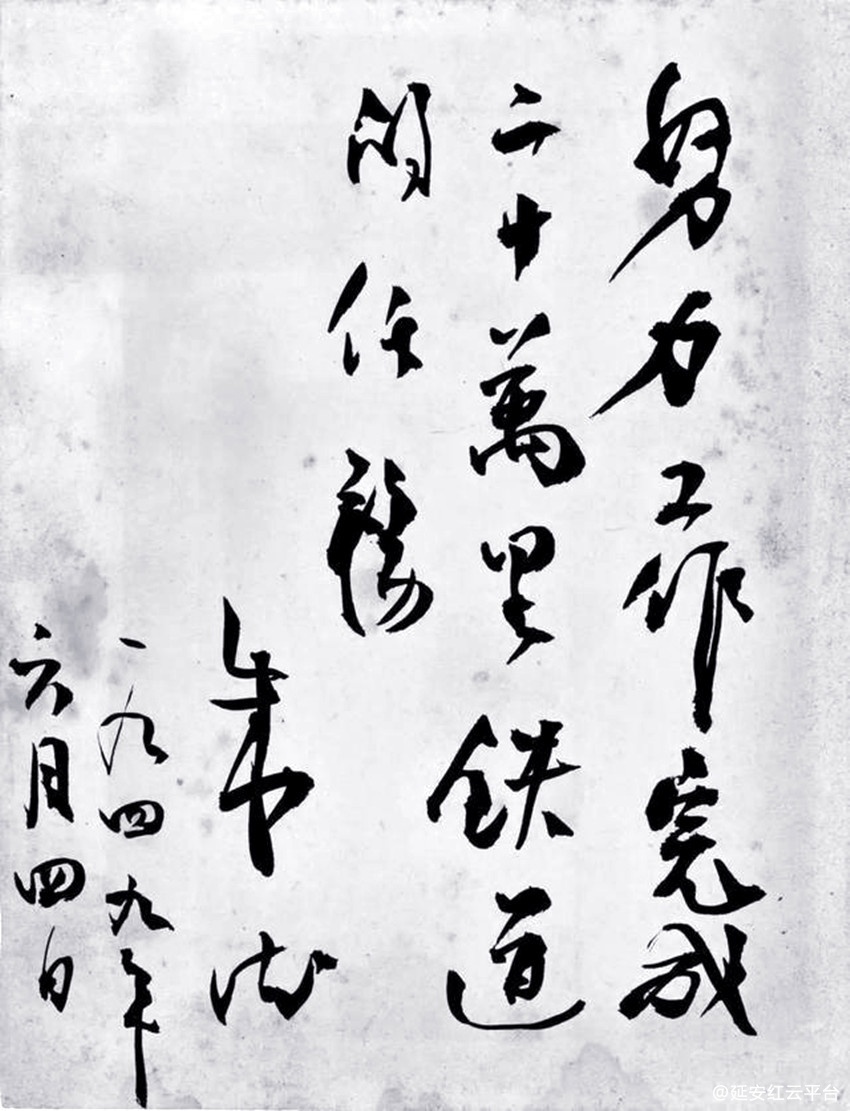 努力工作完成
二十萬里鉄道
的任務
朱德
一九四九年
六月四日
@延安红云平台